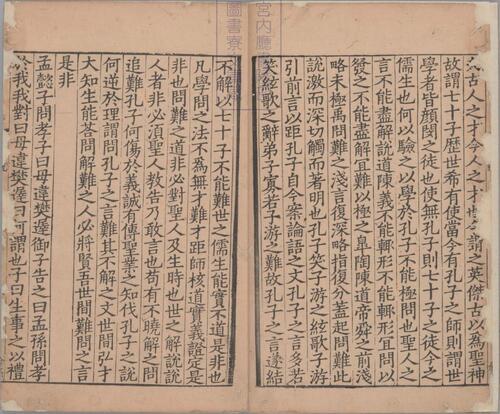 宮內廳
圖書寮
古人之才今人之才也今謂之英傑古以為聖神
故謂七十子歷世希有使當今有孔子之師則謂世
學者皆顏閔之徒也使無孔子則七十子之徒今之
儒生也何以驗之以學於孔子不能極問也聖人之
言不能盡解說道陳義不能輒形不能輒形宜問以
發之不能盡解宜難以極之皐陶陳道帝舜之前淺
略未極禹問難之淺言復深略指復分蓋起問難此
說激而深切觸而著明也孔子笑子游之絃歌子游
引前言以距孔子自今案論語之文孔子之言多若
笑絃歌之辭弟子寡若子游之難故孔子之言遂結
不解以七十子不能難世之儒生能實不道是非也
凡學問之法不為無才難才距師核道實義證定是
非也問難之道非必對聖人及生時也世之解說說
人者非必須聖人教告乃敢言也苟有不曉解之問
追難孔子何傷於義誠有傳聖業之知伐孔子之說
何逆於理謂問孔子之言難其不解之文世間弘才
大知生能荅問解難之人必將賢吾世間難問之言
是非
孟懿子問孝子曰毋違樊遲御子告之曰孟孫問孝
於我我對曰毋違樊遲曰何謂也子曰生事之以禮